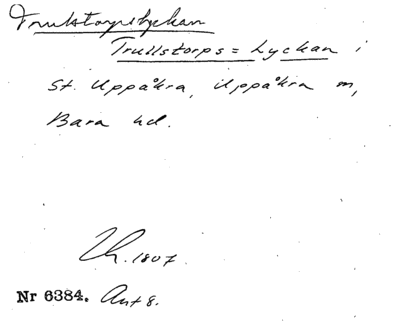 Trulstorpslyckan
Trullstorps=Lyckan i
St. Uppåkra, Uppåkra sn,
Bara hd.
Ch. 1807.
Nr 6384. Ant 8.